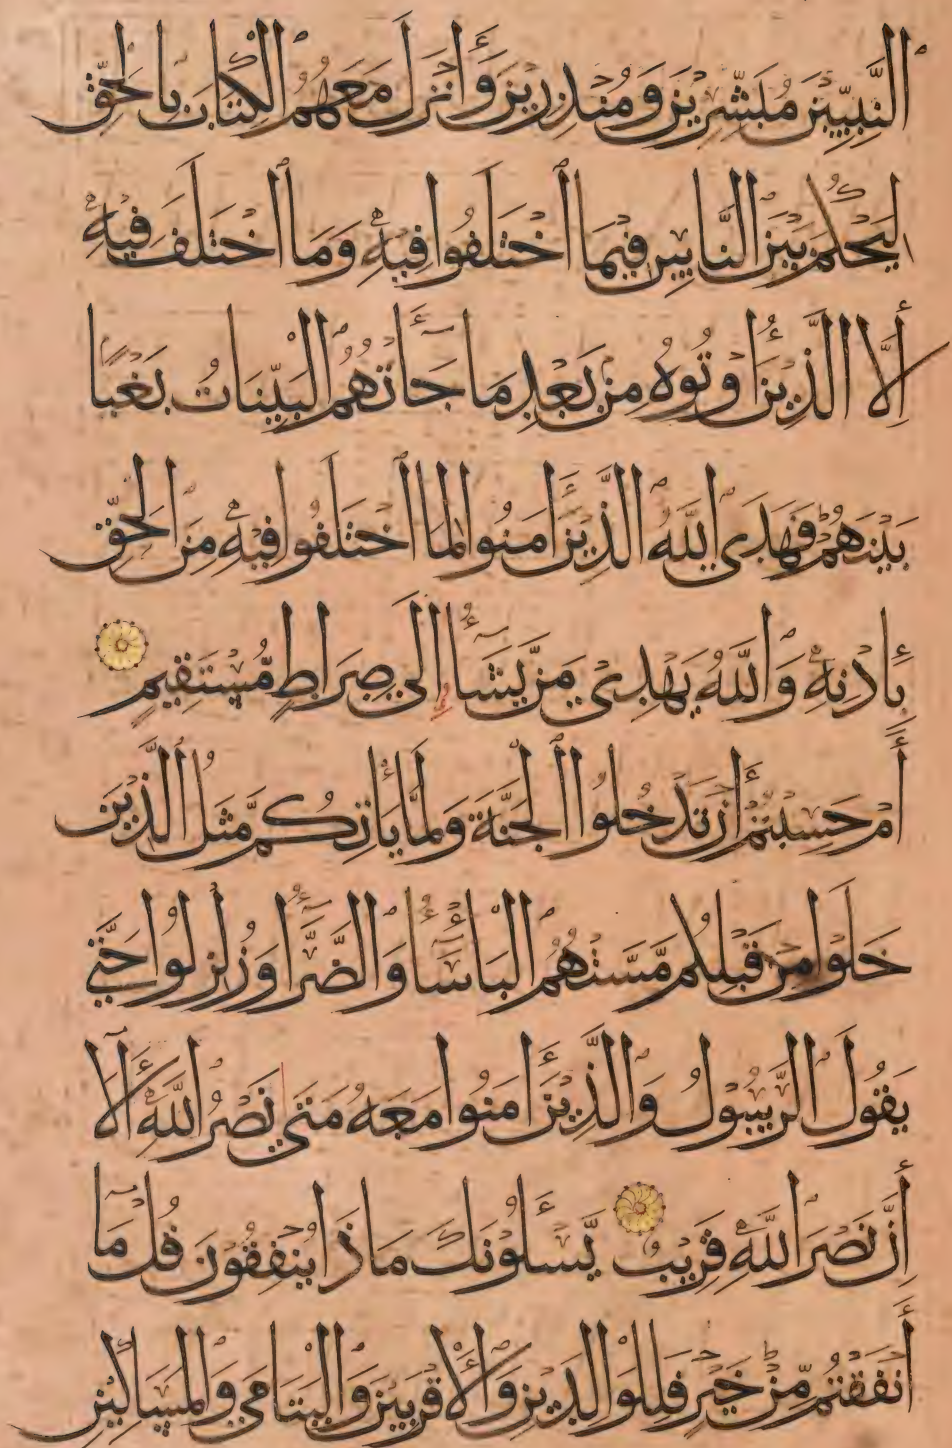 النَّبِيِّينَ مُبَشِّرِينَ وَمُنْذِرِينَ وَأَنْزَلَ مَعَهُمُ الْكِتَابَ بِالْحَقِّ
لِيَحْكُمَ بَيْنَ النَّاسِ فِيمَا اخْتَلَفُوا فِيهِ وَمَا اخْتَلَفَ فِيهِ
إِلَّا الَّذِينَ أُوتُوهُ مِنْ بَعْدِ مَا جَاءَتْهُمُ الْبَيِّنَاتُ بَغْيًا
بَيْنَهُمْ فَهَدَى اللَّهُ الَّذِينَ أَمَنُوا لِمَا اخْتَلَفُوا فِيهِ مِنَ الْحَقِّ
بِإِذْنِهِ وَاللَّهُ يَهْدِي مَنْ يَّشَاءُ إِلَى صِرَاطٍ مُّسْتَقِيمٍ
أَمْ حَسِبْتُمْ أَنْ تَدْخُلُوا الْجَنَّةَ وَلَمَّا يَأْتِكُمْ مَّثَلُ الَّذِينَ
خَلَوْا مِنْ قَبْلِكُمْ مَّسَّتْهُمُ الْبَأْسَاءُ وَالضَّرَّاءُ وَزُلْزِلُوا حَتَّى
يَقُولَ الرَّسُولُ وَالَّذِينَ أَمَنُوا مَعَهُ مَتَى نَصْرُ اللَّهِ أَلَا
إِنَّ نَصْرَ اللَّهِ قَرِيبٌ يَّسْـَٔلُونَكَ مَاذَا يُنْفِقُونَ قُلْ مَا
أَنْفَقْتُمْ مِّنْ خَيْرٍ فَلِلْوَالِدَيْنِ وَالْأَقْرَبِينَ وَالْيَتَامَى وَالْمَسَاكِينِ